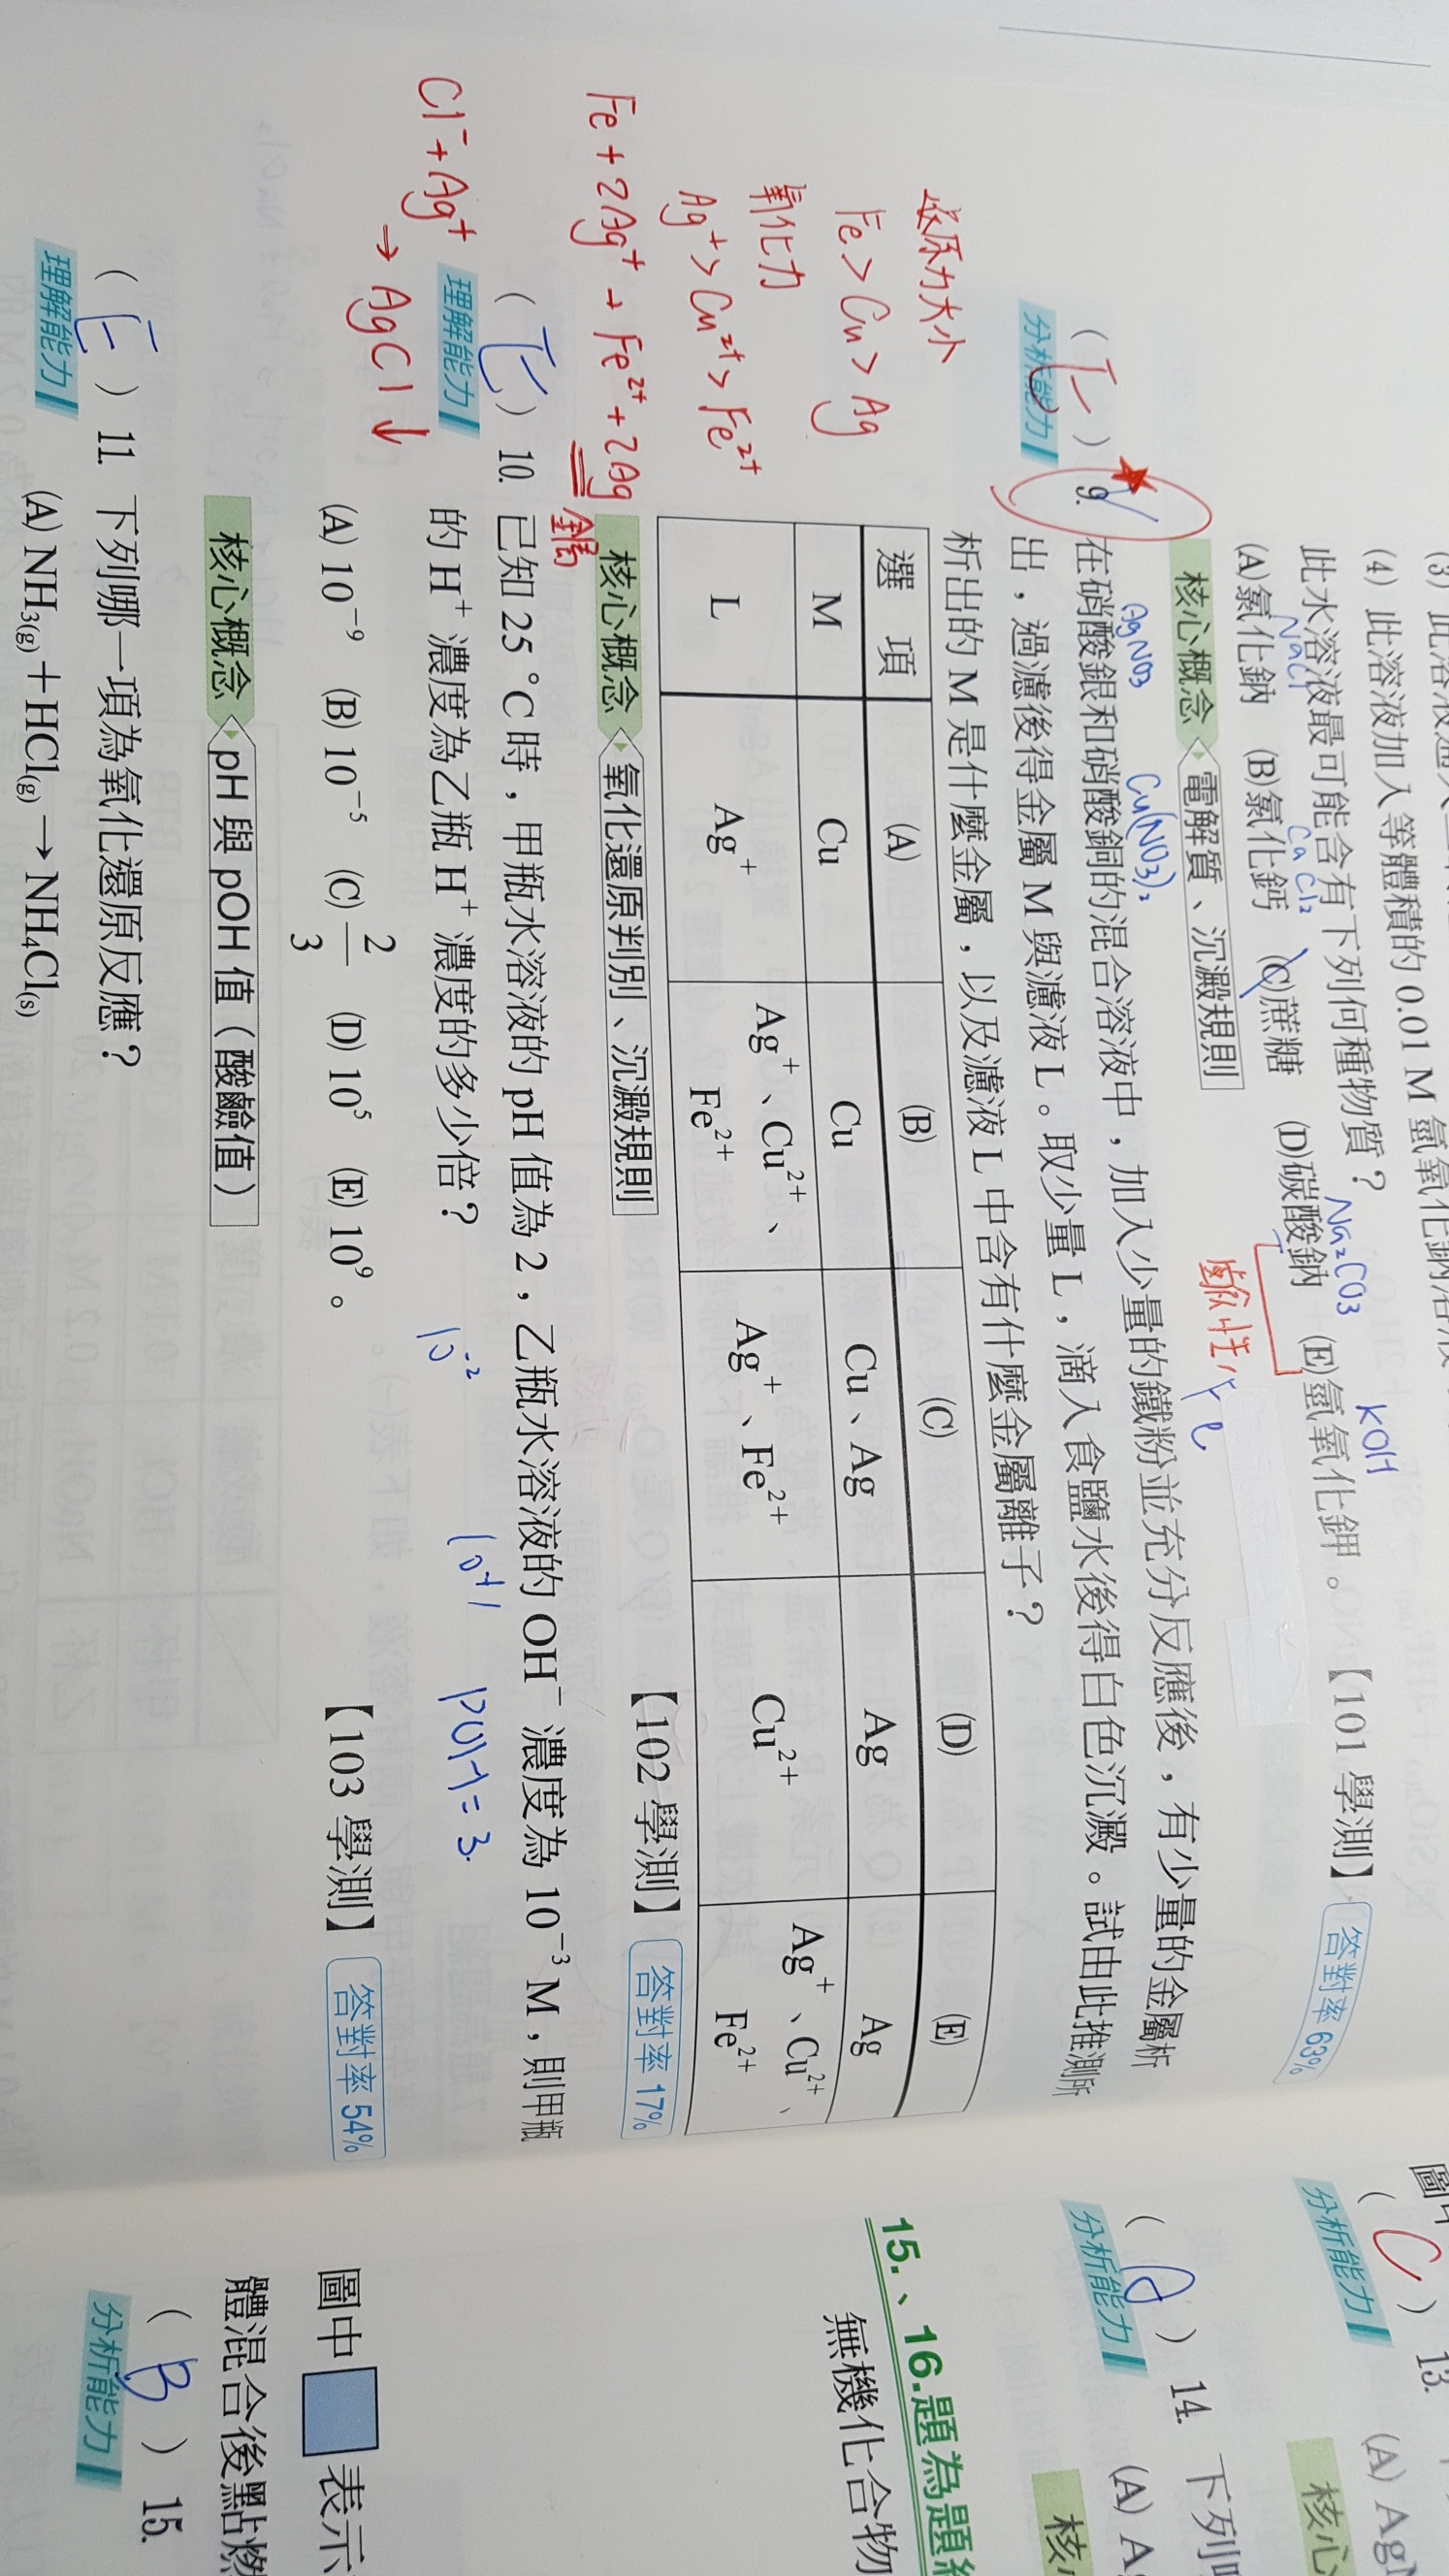 (4) 此溶液加入等體積的 0.01 M 氫氧化鈉溶液
此水溶液最可能含有下列何種物質？
NaCl CaCl₂ Na₂CO₃ KOH
(A)氯化鈉 (B)氯化鈣 (C)蔗糖 (D)碳酸鈉 (E)氫氧化鉀。【101 學測】 答對率 63%
鹼性
核心概念 電解質、沉澱規則
AgNO₃ Cu(NO₃)₂ Fe
( E ) 9. 在硝酸銀和硝酸銅的混合溶液中，加入少量的鐵粉並充分反應後，有少量的金屬析
分析能力
出，過濾後得金屬 M 與濾液 L。取少量 L，滴入食鹽水後得白色沉澱。試由此推測所
析出的 M 是什麼金屬，以及濾液 L 中含有什麼金屬離子？
選項 (A) (B) (C) (D) (E)
M Cu Cu Cu、Ag Ag Ag
L Ag⁺ Ag⁺、Cu²⁺、Fe²⁺ Ag⁺、Fe²⁺ Cu²⁺ Ag⁺、Cu²⁺、Fe²⁺
還原力大小
Fe > Cu > Ag
氧化力
Ag⁺ > Cu²⁺ > Fe²⁺
Fe + 2Ag⁺ → Fe²⁺ + 2Ag
【102 學測】 答對率 17%
核心概念 氧化還原判別、沉澱規則
( E ) 10. 已知 25 °C 時，甲瓶水溶液的 pH 值為 2，乙瓶水溶液的 OH⁻ 濃度為 10⁻³ M，則甲瓶
理解能力
的 H⁺ 濃度為乙瓶 H⁺ 濃度的多少倍？
10⁻² pOH = 3.
Cl⁻ + Ag⁺
→ AgCl↓
(A) 10⁻⁹ (B) 10⁻⁵ (C) 2/3 (D) 10⁵ (E) 10⁹。
【103 學測】 答對率 54%
核心概念 pH 與 pOH 值（酸鹼值）
( E ) 11. 下列哪一項為氧化還原反應？
理解能力
(A) NH₃(g)＋HCl(g) → NH₄Cl(s)
( C ) 13.
分析能力
(A) Ag
核心
( A ) 14. 下列
分析能力
(A) A
核
15.、16.題為題
無機化合物
圖中 表示
體混合後點燃
( B ) 15.
分析能力